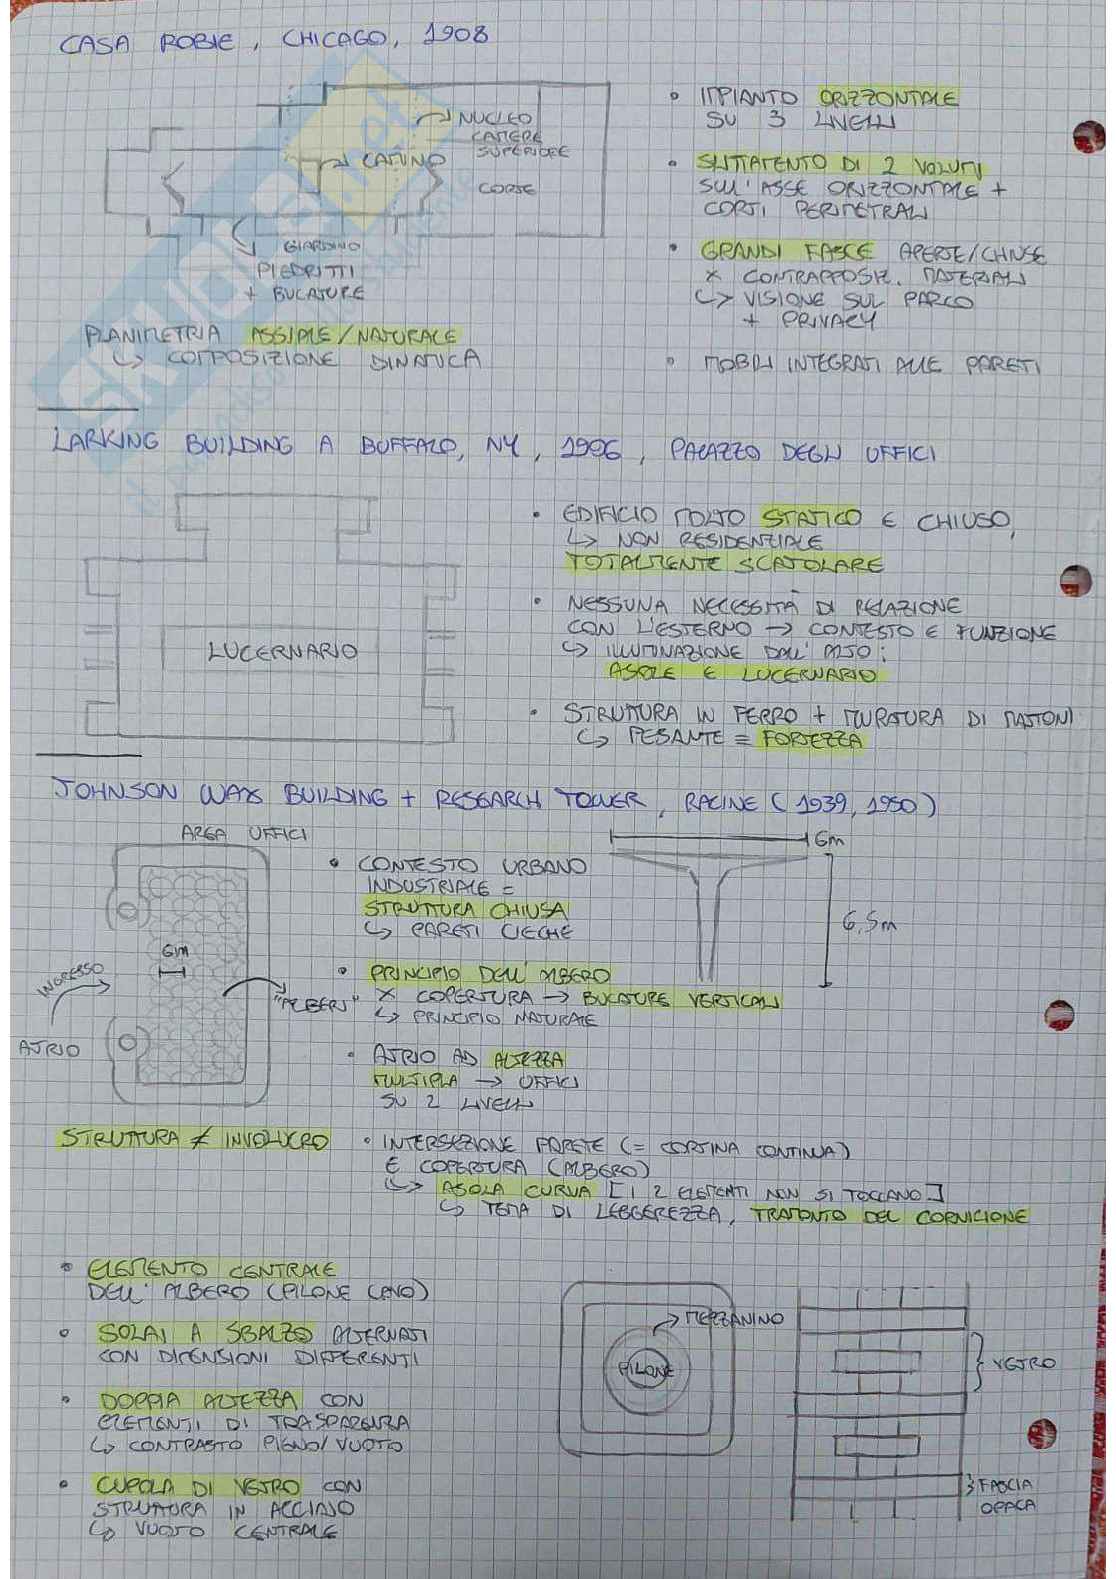 CASA ROBIE, CHICAGO, 1908
NUCLEO
CAMERE
SUPERIORE
CAMINO
CORTE
GIARDINO
PIEDRITTI
+ BUCATURE
PLANIMETRIA ASSIALE/NATURALE
↳ COMPOSIZIONE DINAMICA
• IMPIANTO ORIZZONTALE
SU 3 LIVELLI
• SLITTAMENTO DI 2 VOLUMI
SULL'ASSE ORIZZONTALE +
CORTI PERIMETRALI
• GRANDI FASCE APERTE/CHIUSE
X CONTRAPPOSIZ. MATERIALI
↳ VISIONE SUL PARCO
+ PRIVACY
• MOBILI INTEGRATI ALLE PARETI
LARKING BUILDING A BUFFALO, NY, 1906, PALAZZO DEGLI UFFICI
LUCERNARIO
• EDIFICIO MOLTO STATICO E CHIUSO,
↳ NON RESIDENZIALE
TOTALMENTE SCATOLARE
• NESSUNA NECESSITÀ DI RELAZIONE
CON L'ESTERNO → CONTESTO E FUNZIONE
↳ ILLUMINAZIONE DALL'ALTO:
ASOLE E LUCERNARIO
• STRUTTURA IN FERRO + MURATURA DI MATTONI
↳ PESANTE = FORTEZZA
JOHNSON WAX BUILDING + RESEARCH TOWER, RACINE (1939, 1950)
AREA UFFICI
6m
INGRESSO
"ALBERI"
ATRIO
• CONTESTO URBANO
INDUSTRIALE =
STRUTTURA CHIUSA
↳ PARETI CIECHE
• PRINCIPIO DELL'ALBERO
X COPERTURA → BUCATURE VERTICALI
↳ PRINCIPIO NATURALE
• ATRIO AD ALTEZZA
MULTIPLA → UFFICI
SU 2 LIVELLI
6m
6,5m
STRUTTURA ≠ INVOLUCRO
• INTERSEZIONE PARETE (= CORTINA CONTINUA)
E COPERTURA (ALBERO)
↳ ASOLA CURVA [I 2 ELEMENTI NON SI TOCCANO]
↳ TEMA DI LEGGEREZZA, TRAMONTO DEL CORNICIONE
• ELEMENTO CENTRALE
DELL'ALBERO (PILONE CAVO)
• SOLAI A SBALZO ALTERNATI
CON DIMENSIONI DIFFERENTI
• DOPPIA ALTEZZA CON
ELEMENTI DI TRASPARENZA
↳ CONTRASTO PIENO/VUOTO
• CUPOLA DI VETRO CON
STRUTTURA IN ACCIAIO
↳ VUOTO CENTRALE
MEZZANINO
PILONE
VETRO
FASCIA
OPACA